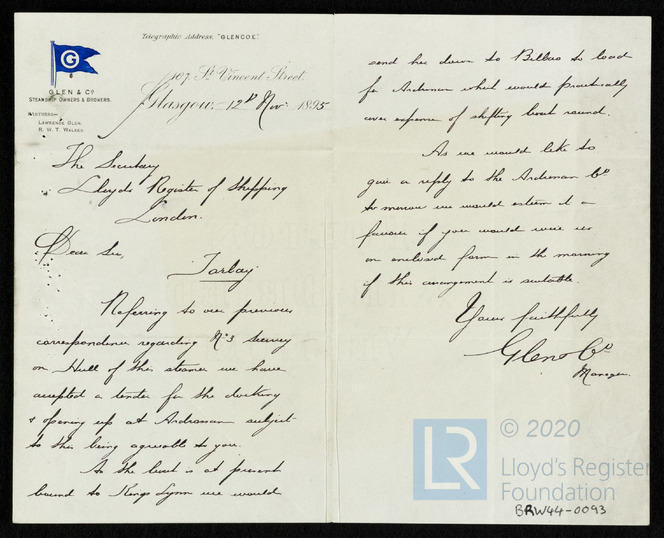 Telegraphic Address, "GLENCOE"
G
GLEN & Co
STEAMSHIP OWNERS & BROKERS.
PARTNERS:-
LAWRENCE GLEN.
R. W. T. WALKER.
107, St. Vincent Street.
Glasgow, 12th Nov. 1895
The Secretary
Lloyds Register of Shipping
London.
Dear Sir,
Torbay
Referring to our previous
correspondence regarding No 3 Survey
on Hull of this steamer we have
accepted a tender for the docking
& opening up at Ardrossan subject
to this being agreeable to you.
As the boat is at present
bound to Kings Lynn we would
send her down to Bilbao to load
for Ardrossan which would practically
cover expense of shifting boat round.
As we would like to
give a reply to the Ardrossan Co
to morrow we would esteem it a
favour if you would wire us
on enclosed form in the morning
if this arrangement is suitable.
Yours faithfully
Glen & Co
Manager.
LR © 2020
Lloyd's Register
Foundation
BRW44-0093